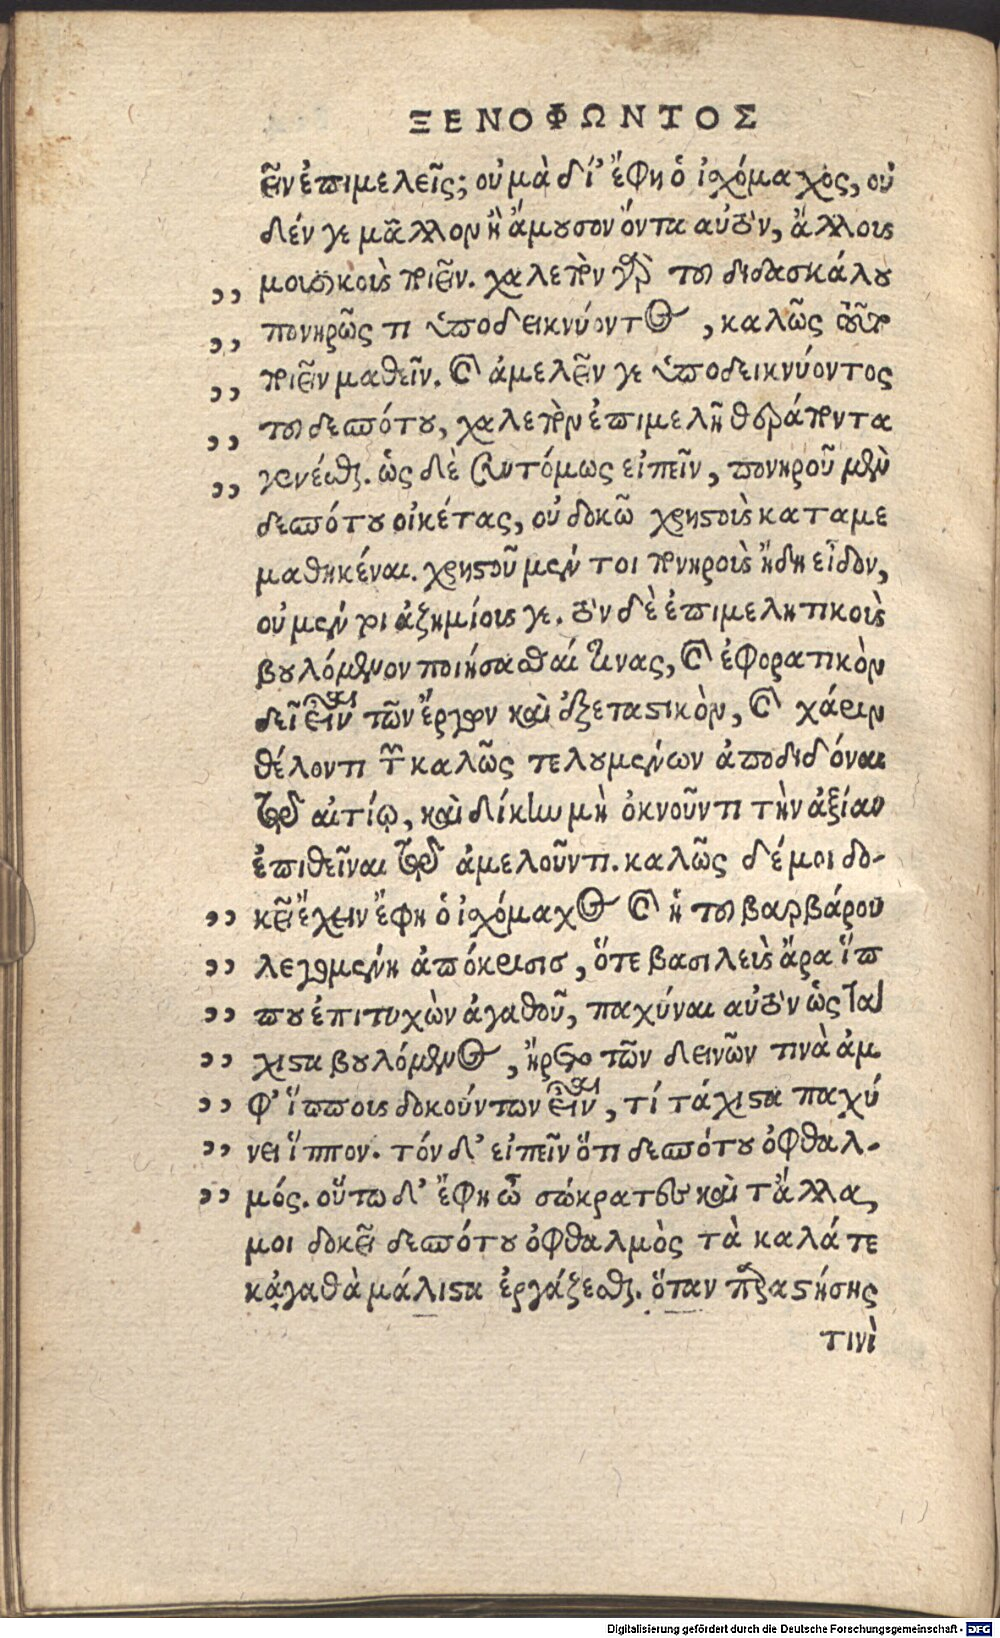 ΞΕΝΟΦΩΝΤΟΣ
εῖν ἐπιμελεῖς; οὐ μὰ δί' ἔφη ὁ ἰσχόμαχος, οὐ
δέν γε μᾶλλον ἢ ἄμουσον ὄντα αὐτὸν, ἄλλους
,, μουσικοὺς ποιεῖν. χαλεπὸν γὰρ τοῦ διδασκάλου
,, πονηρῶς τι ὑποδεικνύοντος, καλῶς τοῦτο
,, ποιεῖν μαθεῖν. καὶ ἀμελεῖν γε ὑποδεικνύοντος
,, τοῦ δεσπότου, χαλεπὸν ἐπιμελῆ θεράποντα
,, γενέσθαι. ὡς δὲ συντόμως εἰπεῖν, πονηροῦ μὲν
δεσπότου οἰκέτας, οὐ δοκῶ χρηστοὺς καταμε
μαθηκέναι. χρηστοῦ μέν τοι πονηροὺς ἤδη εἶδον,
οὐ μέν τοι ἀζημίους γε. τὸν δὲ ἐπιμελητικοὺς
βουλόμενον ποιήσασθαί τινας, καὶ ἐφορατικὸν
δεῖ εἶναι τῶν ἔργων καὶ ἐξεταστικὸν, καὶ χάριν
θέλοντι τῶν καλῶς τελουμένων ἀποδιδόναι
τῷ αἰτίῳ, καὶ δίκην μὴ ὀκνοῦντι τὴν ἀξίαν
ἐπιθεῖναι τῷ ἀμελοῦντι. καλῶς δέ μοι δο-
,, κεῖ ἔχειν ἔφη ὁ ἰσχόμαχος καὶ ἡ τοῦ βαρβάρου
,, λεγομένη ἀπόκρισις, ὅτε βασιλεὺς ἄρα ἵπ
,, που ἐπιτυχὼν ἀγαθοῦ, παχύναι αὐτὸν ὡς τά
,, χιστα βουλόμενος, ἤρετο τῶν δεινῶν τινὰ ἀμ
,, φ' ἵππους δοκούντων εἶναι, τί τάχιστα παχύ
,, νει ἵππον. τόν δ' εἰπεῖν ὅτι δεσπότου ὀφθαλ-
,, μός. οὕτω δ' ἔφη ὦ σώκρατες καὶ τἄλλα,
μοι δοκεῖ δεσπότου ὀφθαλμὸς τὰ καλά τε
κἀγαθὰ μάλιστα ἐργάζεσθαι. ὅταν παραστήσῃς
τινὶ
Digitalisierung gefördert durch die Deutsche Forschungsgemeinschaft - DFG